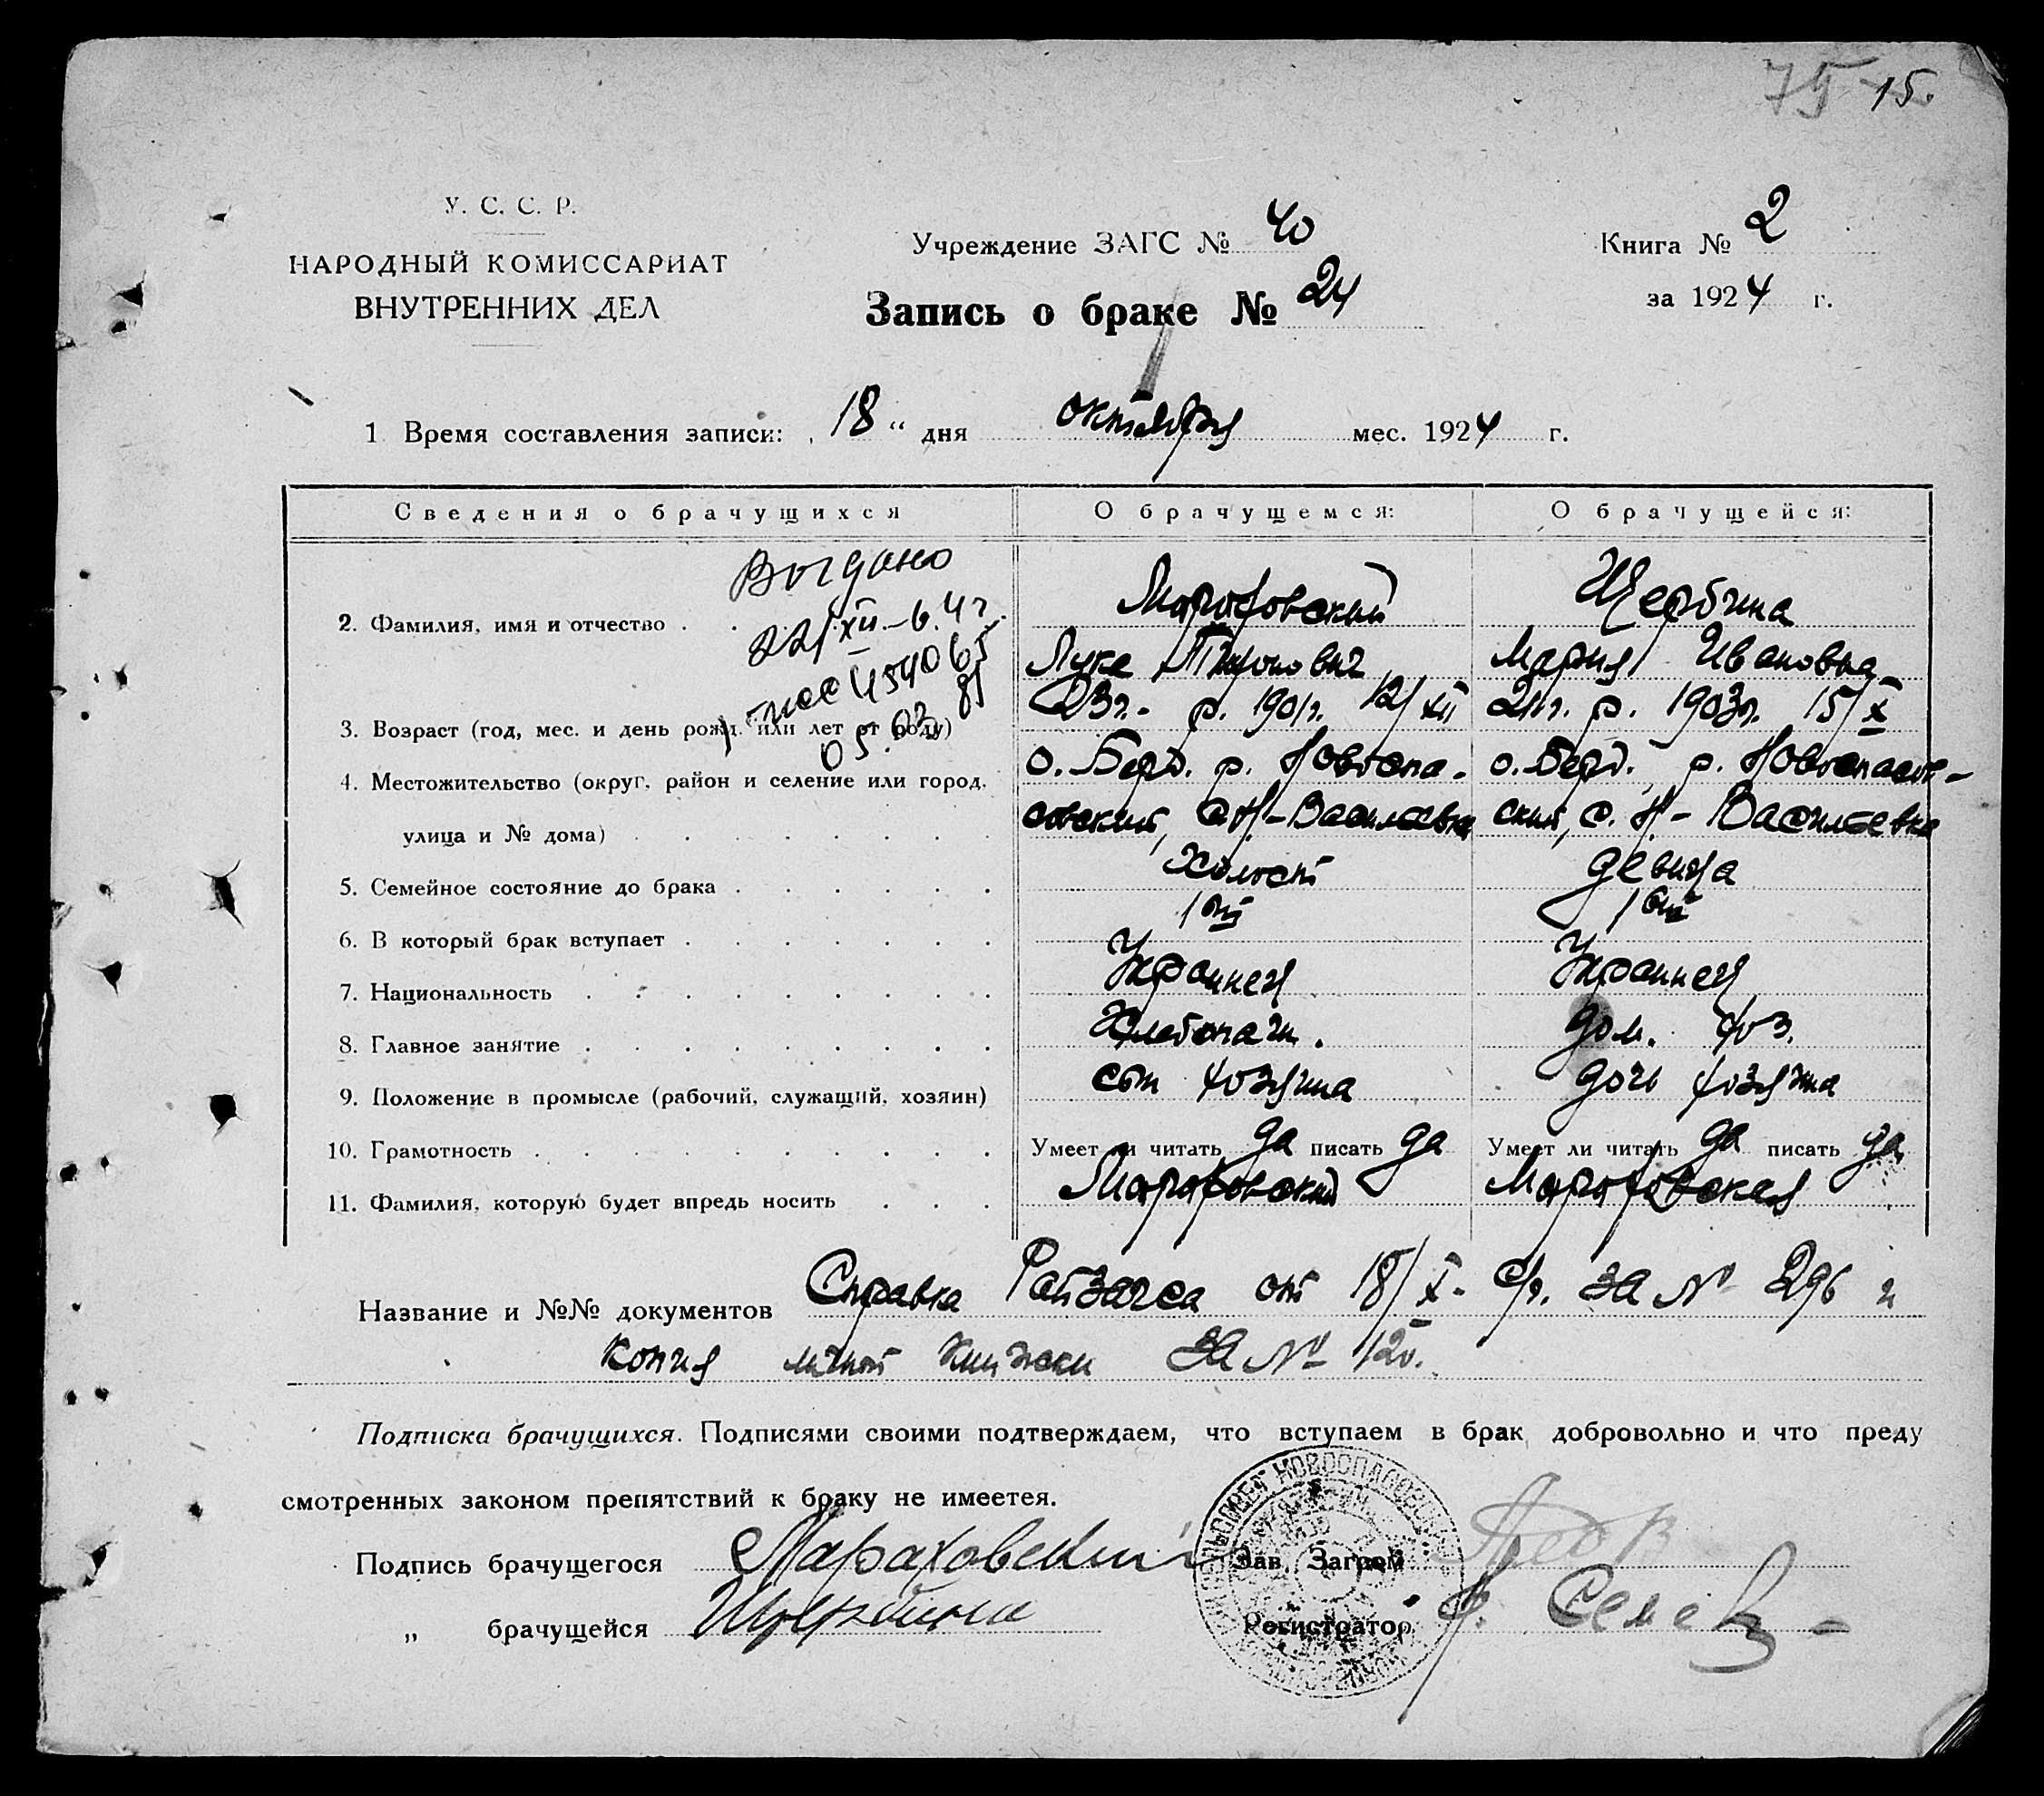 75 15.
У. С. С. Р.
НАРОДНЫЙ КОМИССАРИАТ
ВНУТРЕННИХ ДЕЛ
Учреждение ЗАГС № 40
Книга № 2
Запись о браке № 24
за 1924 г.
1 Время составления записи: 18 “ дня октября мес. 1924 г.
Сведения о брачущихся О брачущемся: О брачущейся:
2. Фамилия, имя и отчество Мороховский Щербина
Лука Ивановна Мария
22/XII
3. Возраст (год, мес. и день рожд. или лет от роду) 23 г. р. 1901 г. 12/XII 21 г. р. 1903 г. 15/X
4. Местожительство (округ, район и селение или город, о. Берд. р. Новоспа- о. Берд. р. Новоспасов-
улица и № дома) совский, с. Н-Васильевка ский, с. Н-Васильевка
5. Семейное состояние до брака холост девица
6. В который брак вступает 1ый 1ый
7. Национальность Украинец Украинец
8. Главное занятие Хлебопаш. дом. хоз.
9. Положение в промысле (рабочий, служащий, хозяин) сын хозяина дочь хозяина
10. Грамотность Умеет ли читать да писать да Умеет ли читать да писать да
11. Фамилия, которую будет впредь носить Мороховский Мороховская
Название и №№ документов Справка Райзагса от 18/X с/г. за № 296 и
копия личной книжки за № 120.
Подписка брачущихся. Подписями своими подтверждаем, что вступаем в брак добровольно и что преду
смотренных законом препятствий к браку не имеетея.
Подпись брачущегося Мараховский Зав. Загсом
„ брачущейся Щербина Регистратор